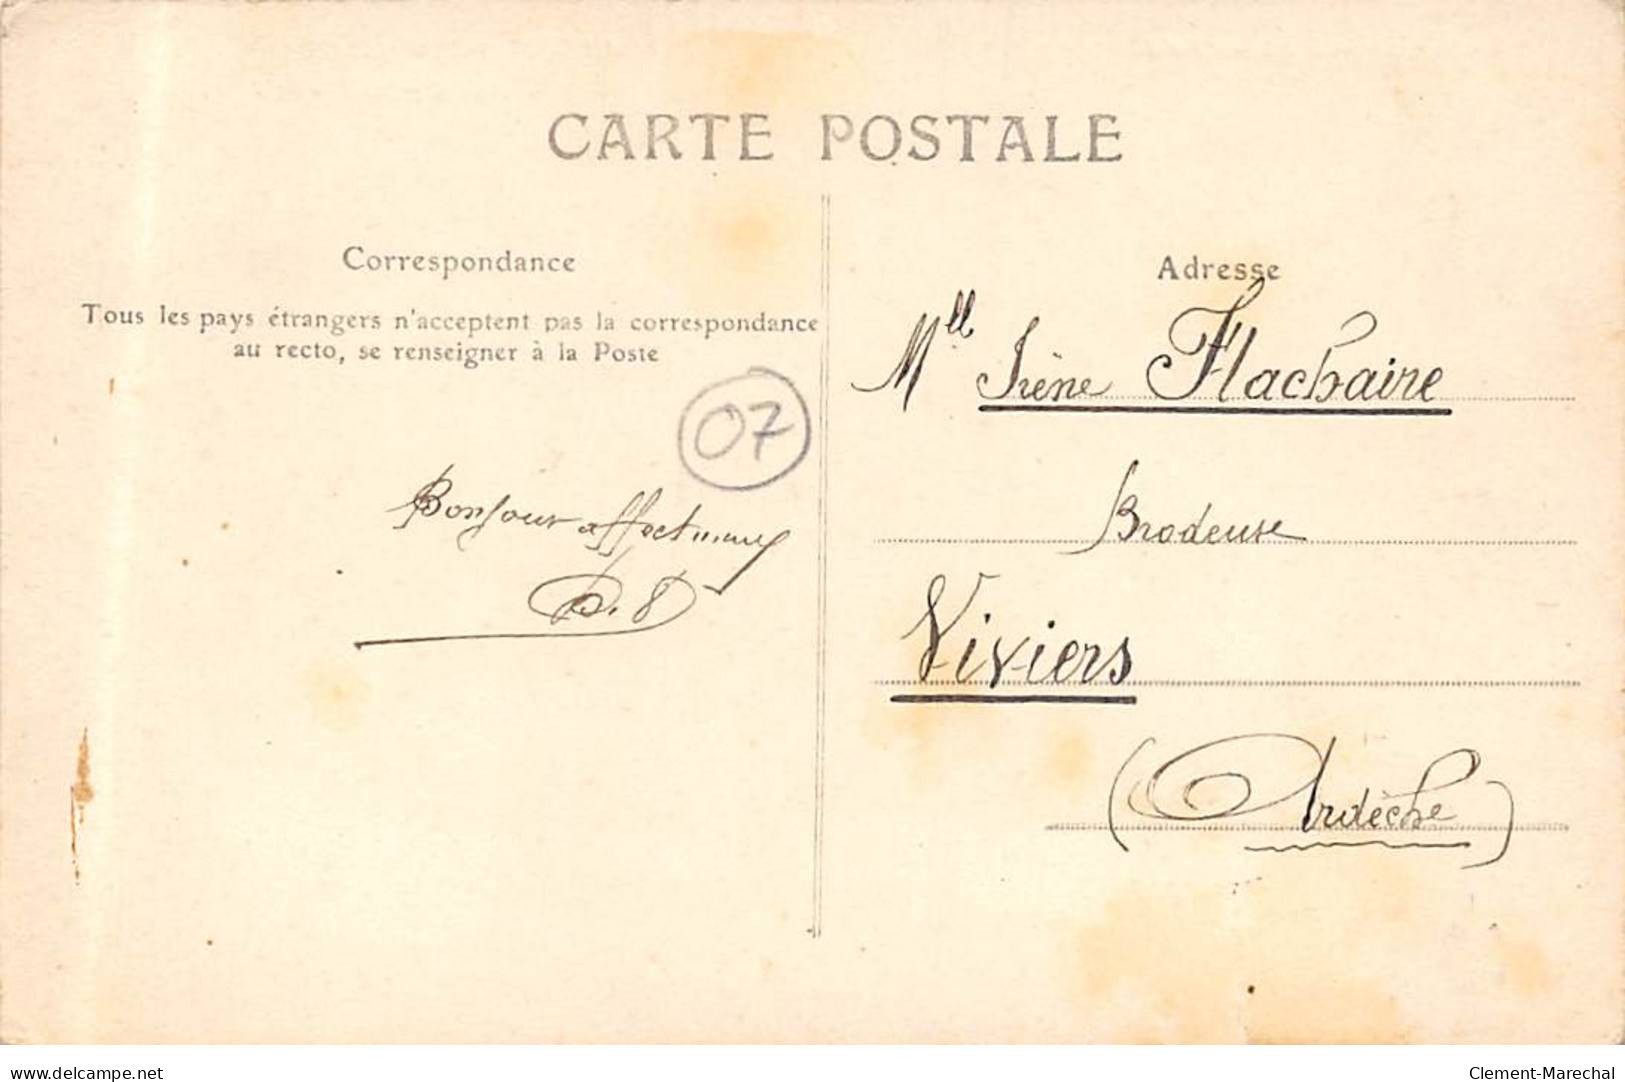 CARTE POSTALE
Correspondance
Tous les pays étrangers n'acceptent pas la correspondance
au recto, se renseigner à la Poste
07
Bonjour affectueux
Adresse
Mlle Irène Flachaire
Brodeuse
Viviers
(Ardèche)
delcampe.net
Clement-Marechal